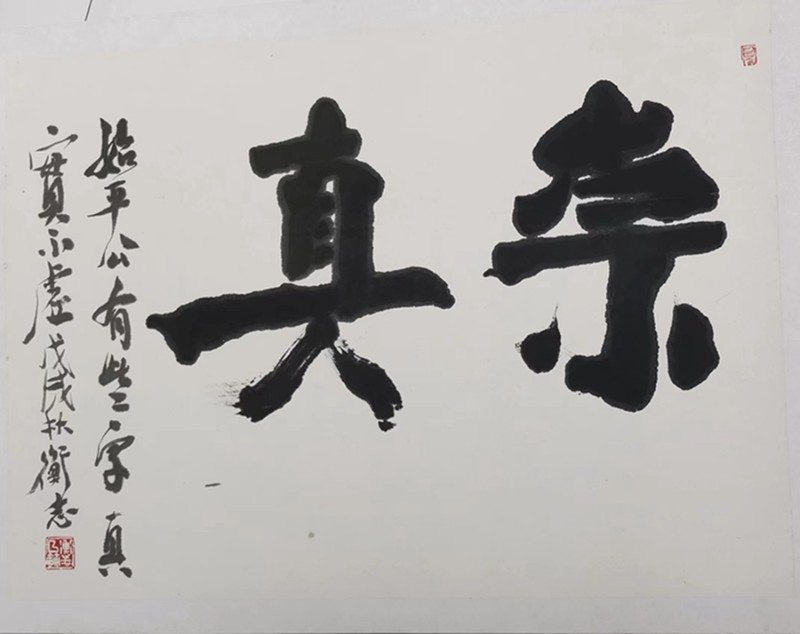 崇真
始平公有些字真
實不虛戊戌秋衡志